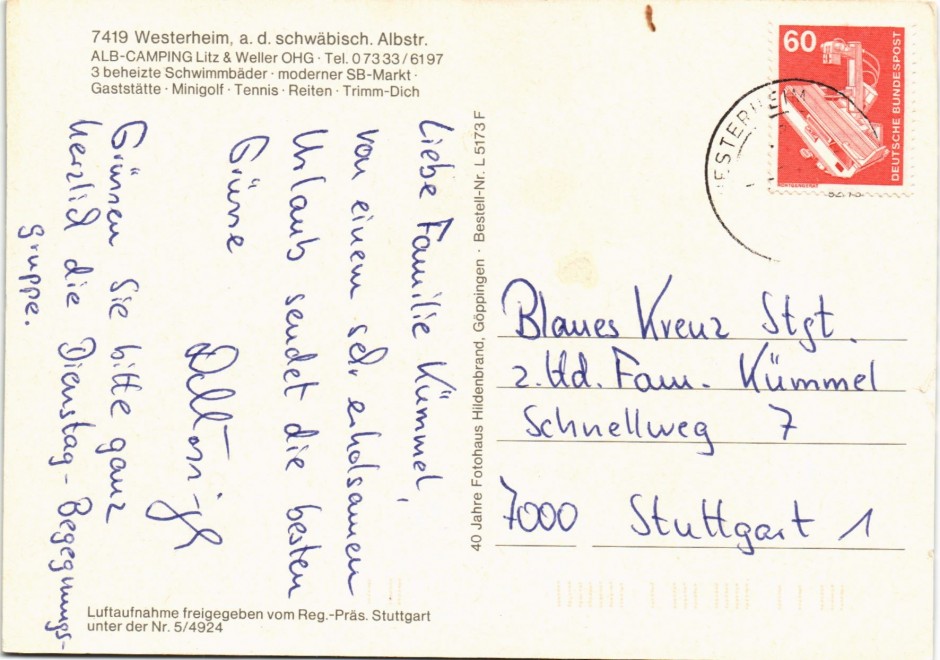 7419 Westerheim, a. d. schwäbisch. Albstr.
ALB-CAMPING Litz & Weller OHG · Tel. 0 73 33 / 61 97
3 beheizte Schwimmbäder · moderner SB-Markt ·
Gaststätte · Minigolf · Tennis · Reiten · Trimm-Dich
Liebe Familie Kümmel,
von einem sehr erholsamen
Urlaub sendet die besten
Grüsse
Grüssen Sie bitte ganz
herzlich die Dienstag-Begegnungs-
gruppe.
Luftaufnahme freigegeben vom Reg.-Präs. Stuttgart
unter der Nr. 5/4924
40 Jahre Fotohaus Hildenbrand, Göppingen · Bestell-Nr. L 5173 F
60
DEUTSCHE BUNDESPOST
RÖNTGENGERÄT
WESTERHEIM
Blaues Kreuz Stgt.
z. Hd. Fam. Kümmel
Schnellweg 7
7000 Stuttgart 1